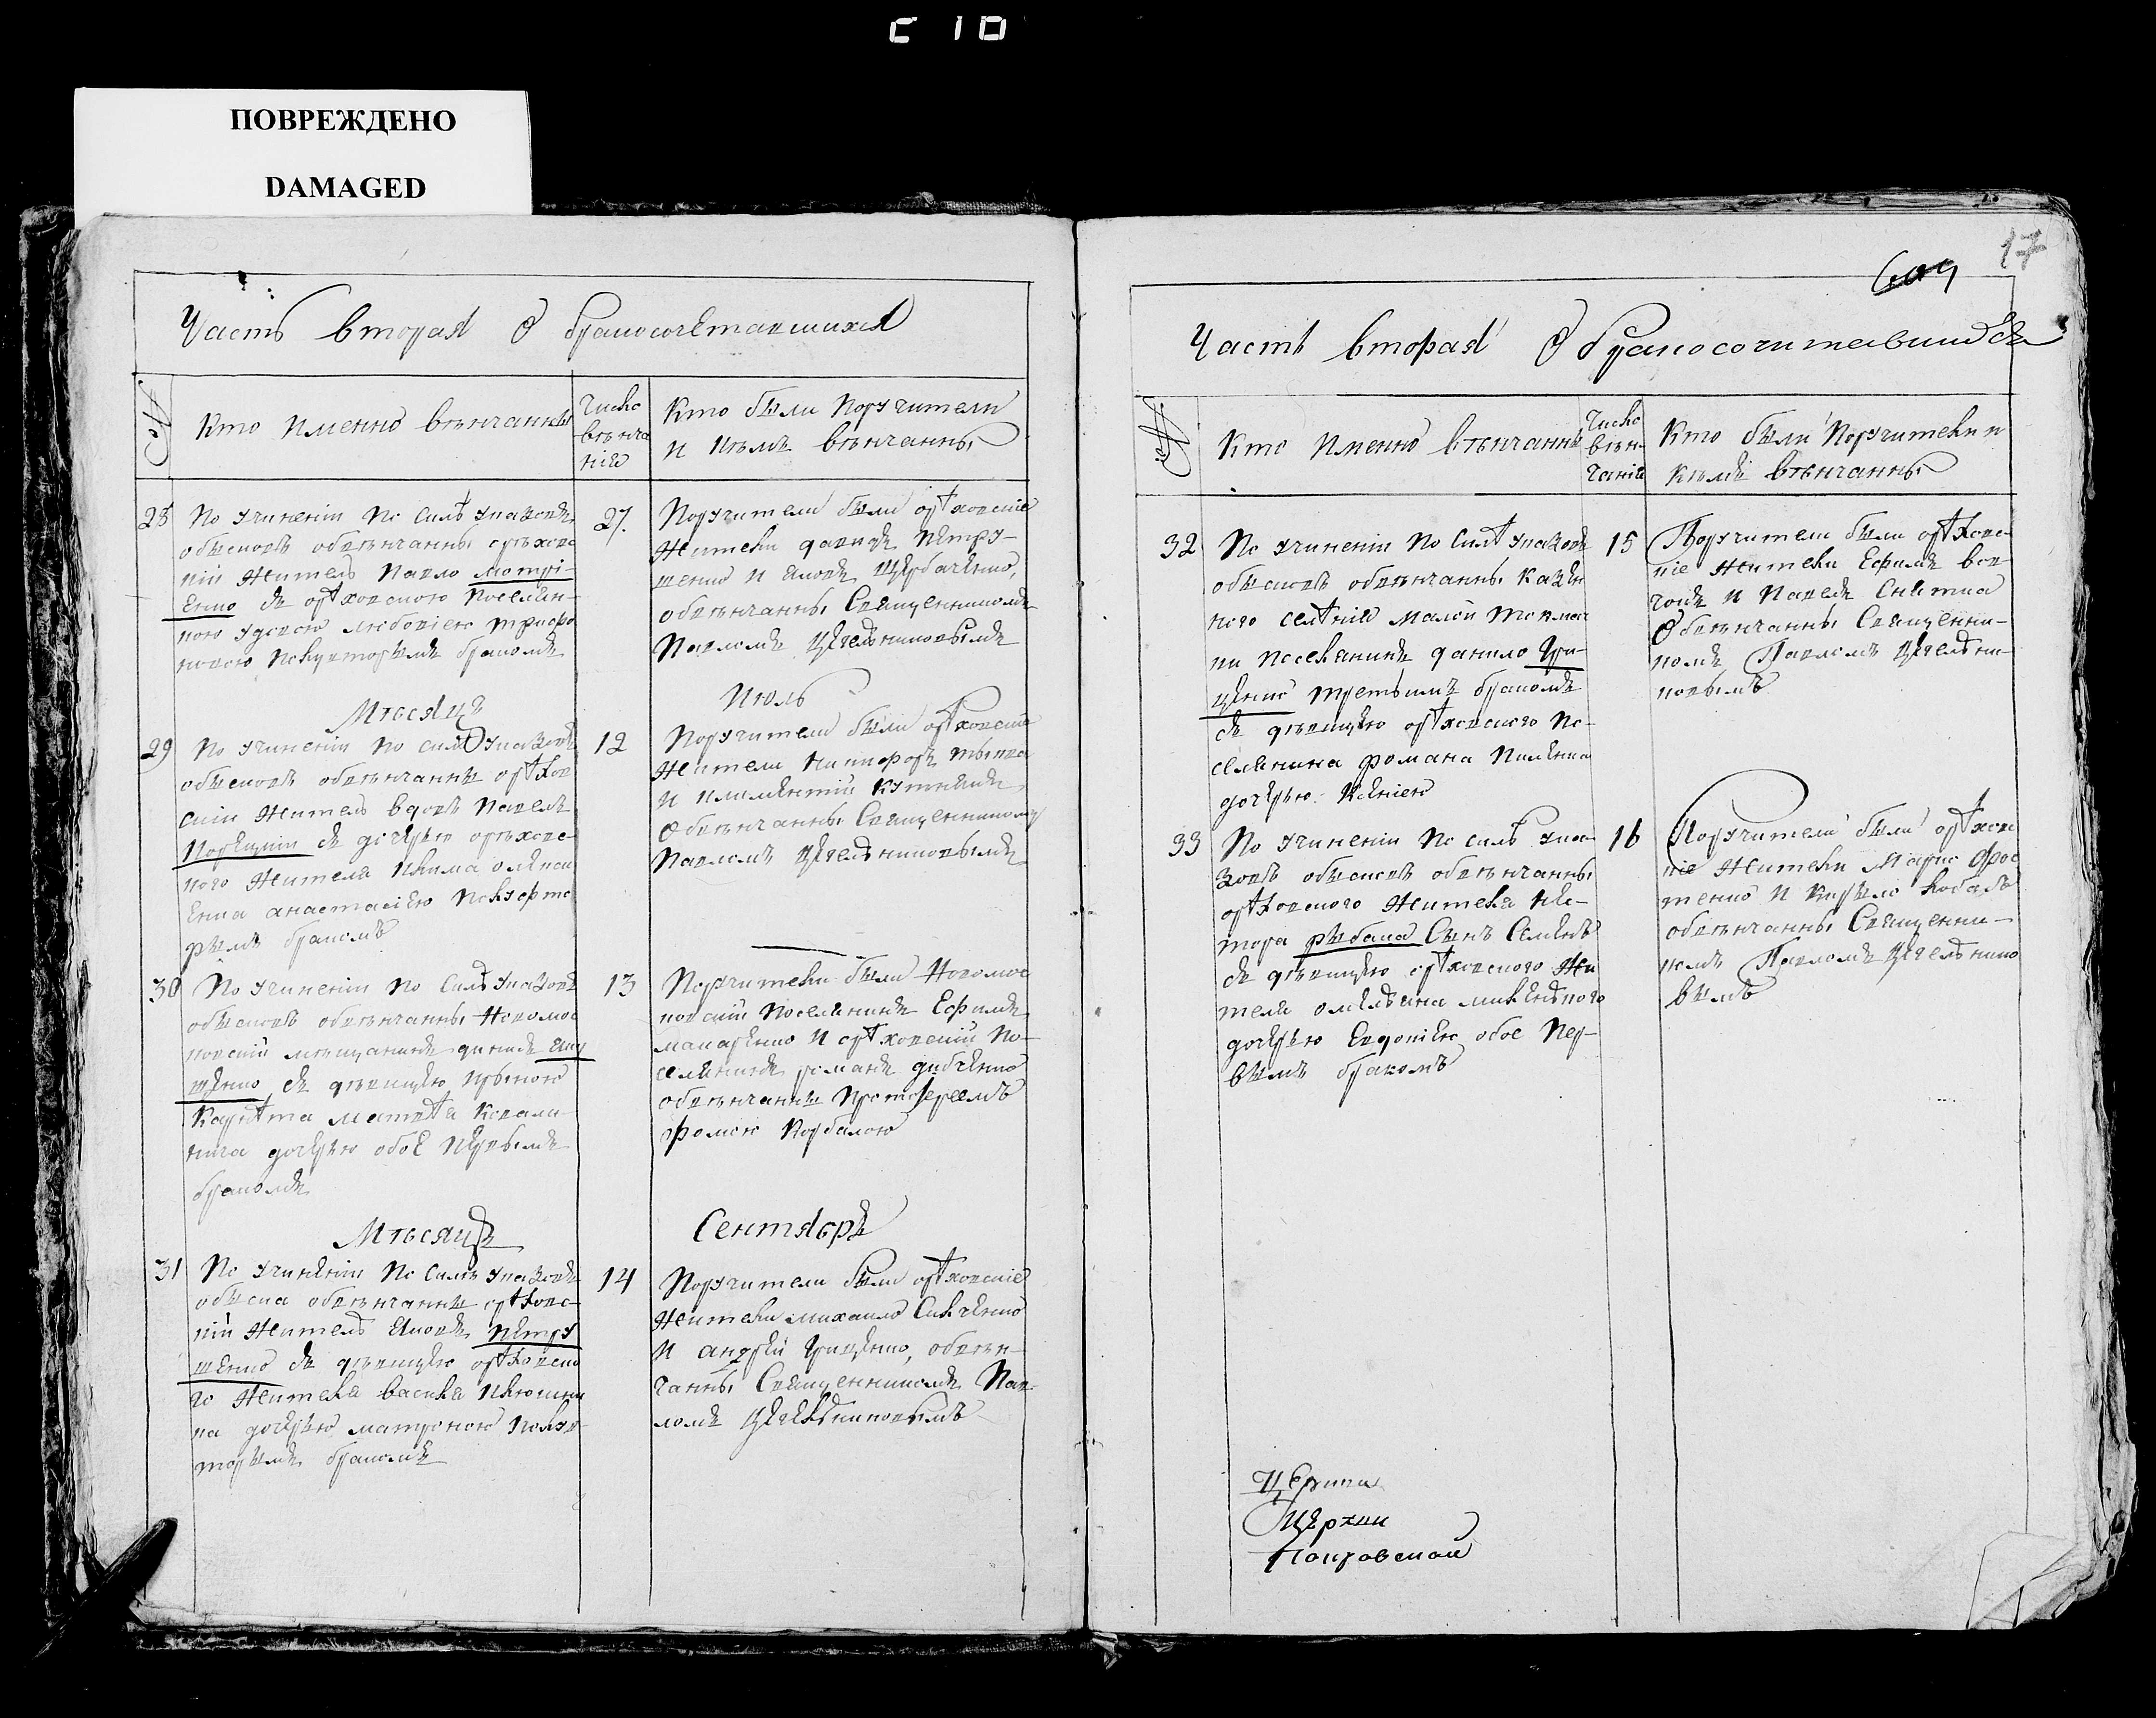 C 10
ПОВРЕЖДЕНО
DAMAGED
Часть вторая О бракосочетавшихся
№
Кто именно вѣнчанны
Число
вѣнча
нія
Кто были поручители
и кѣмъ вѣнчанны
28
По учиненіи по силѣ указовъ
обысковъ обвѣнчанны орѣховс
кій житель Павло Мотрі-
енко съ орѣховскою поселян-
кою удовою Любовією Трифо
новою полувторымъ бракомъ
27.
Поручители были орѣховскіе
жители Давидъ Петру-
шенко и Яковъ Щербаченко,
обвѣнчанны Священникомъ
Павломъ Цегельниковымъ
Мѣсяцъ
Июль
29
По учиненіи по силѣ указовъ
обысковъ обвѣнчанны орѣхов
скій житель вдовъ Павелъ
съ дочерью орѣховс-
кого жителя Якима Олексі
енка Анастасіею полувто
рымъ бракомъ
12
Поручители были орѣховскіе
жители Никифоръ
и Климентій
Обвѣнчанны Священникомъ
Павломъ Цегельниковымъ
30
По учиненіи по силѣ указовъ
обысковъ обвѣнчанны Новомос
ковскій мѣщанинъ
съ дѣвицею Ириною
Матвѣя Ковали
дочерью обоё первымъ
бракомъ
13
Поручители были Новомос
ковскій поселянинъ Ефимъ
Макаренко и орѣховскій по-
селянинъ Романъ
обвѣнчанны Протоіереемъ
Фомою Корбалою
Мѣсяцъ
Сентябрь
31
По учиненіи по силѣ указовъ
обыска обвѣнчанны орѣховс-
кій житель Яковъ Петру
шенко съ дѣвицею орѣховско
го жителя Василя
ка дочерью Матроною полув-
торымъ бракомъ
14
Поручители были орѣховскіе
жители Михаило
и Андрей Гриценко, обвѣн-
чанны Священникомъ Пав-
ломъ Цегельниковымъ
17
609
Часть вторая О бракосочитавшихся
№
Кто именно вѣнчанны
Число
вѣн-
чанія
Кто были поручители и
кѣмъ вѣнчанны
32
По учиненіи по силѣ указовъ
обысковъ обвѣнчанны казен
ного селѣнія Малой Токмач
ки поселянинъ Данило Гри-
ценко третьимъ бракомъ
съ дѣвицею орѣховского по-
селянина Романа
дочерью Ксеніею
15
Поручители были орѣховс-
кіе жители Ефимъ
и Павелъ
Обвѣнчанны Священни-
комъ Павломъ Цегельни-
ковымъ
33
По учиненіи по силѣ ука-
зовъ обысковъ обвѣнчанны
орѣховского жителя Нес-
тора Рыбака сынъ Семенъ
съ дѣвицею орѣховского жи
теля Омельяна
дочерью Евдокіею обое пер-
вымъ бракомъ
16
Поручители были орѣховс
кіе жители Марко
тенко и Кирыло Кобаль
обвѣнчанны Священни-
комъ Павломъ Цегельнико
вымъ
Церкви
Покровской